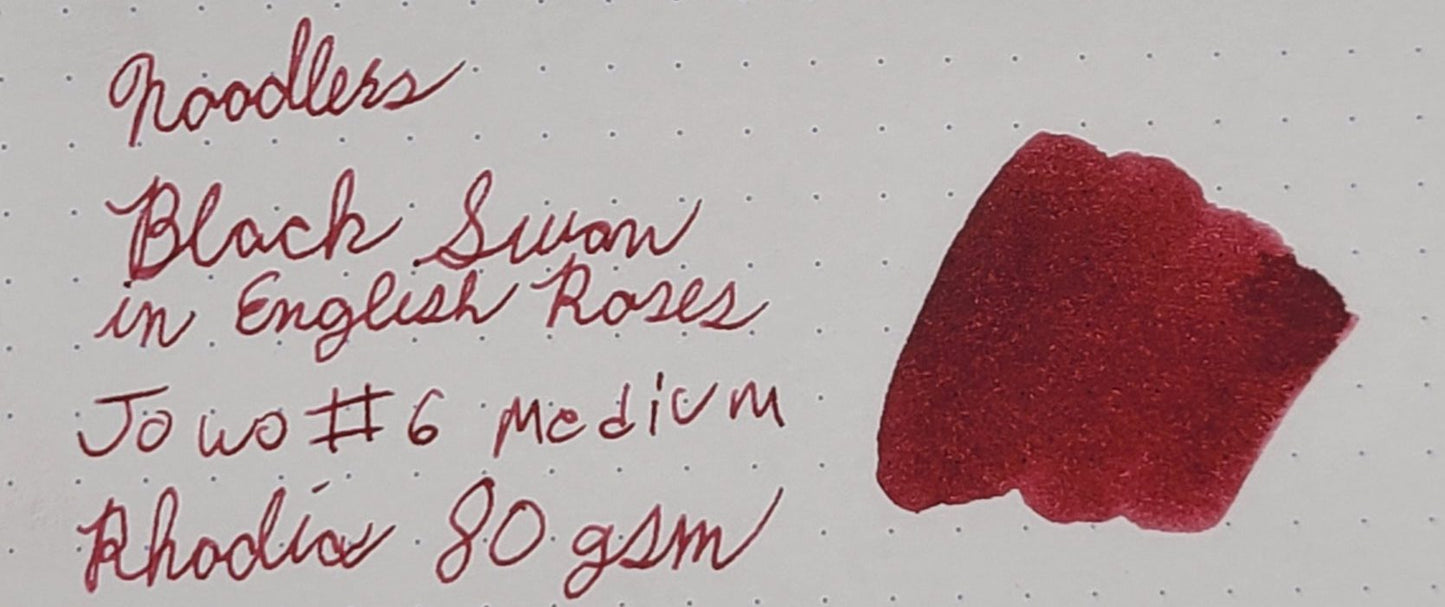 Noodlers
Black Swan
in English Roses
Jowo #6 Medium
Rhodia 80 gsm